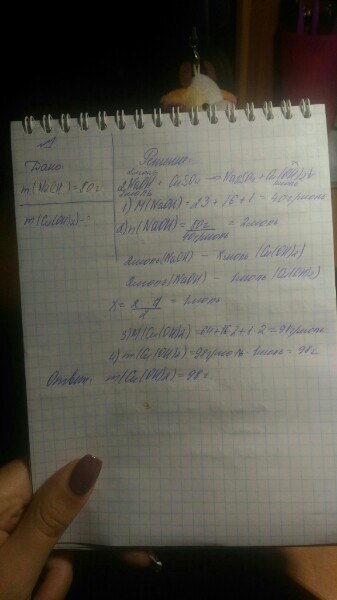 №1
Дано:
m(NaOH)=80г
m(Cu(OH)2)-?
Решение:
2моль х моль
2NaOH + CuSO4 → Na2SO4 + Cu(OH)2↓
2моль 1моль
1) M(NaOH)=23+16+1=40г/моль
2) n(NaOH)= 80г / 40г/моль = 2моль
2моль(NaOH) - х моль (Cu(OH)2)
2моль(NaOH) - 1моль (Cu(OH)2)
x = 2 · 1 / 2 = 1моль
3) M(Cu(OH)2)=64+16·2+1·2=98г/моль
4) m(Cu(OH)2)=98г/моль·1моль=98г
Ответ: m(Cu(OH)2)=98г